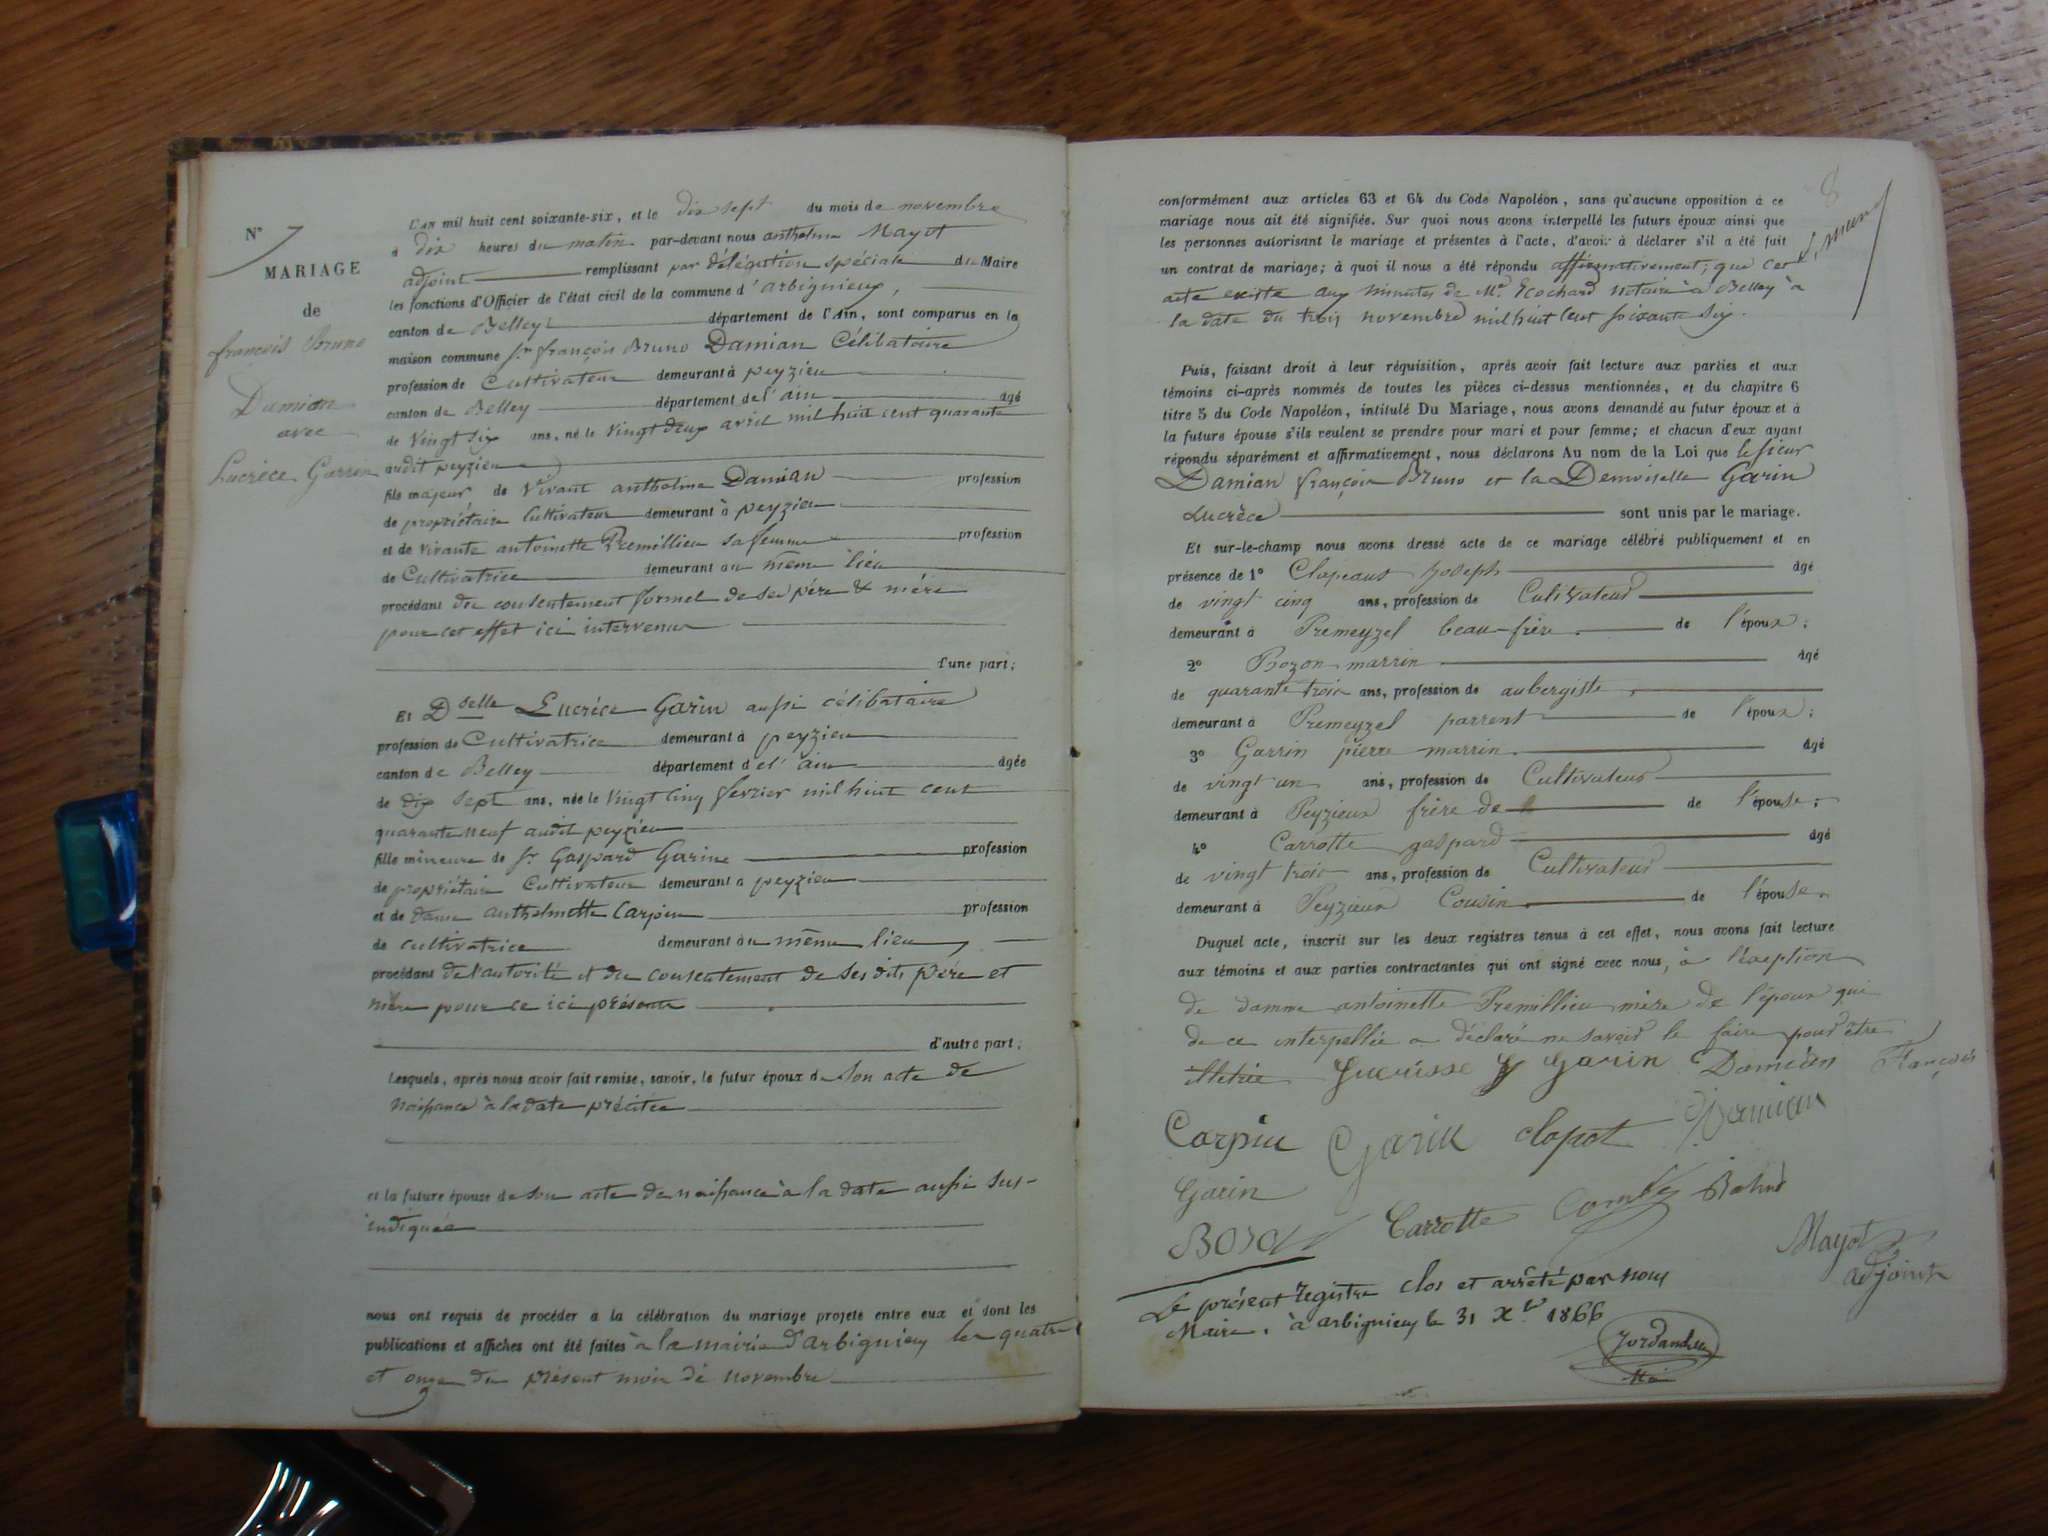 N° 7
MARIAGE
de
françois Bruno
Damian
avec
Lucrèce Garrin
L'AN mil huit cent soixante-six, et le dix sept du mois de novembre
à dix heures du matin par-devant nous anthelme Mayot
adjoint remplissant par délégation spéciale du Maire
les fonctions d'Officier de l'état civil de la commune d'arbignieu,
canton de Belley département de l'Ain, sont comparus en la
maison commune Sr françois Bruno Damian Célibataire
profession de Cultivateur demeurant à peyzieu
canton de Belley département de l'ain âgé
de vingt six ans, né le vingt deux avril mil huit cent quarante
audit peyzieu
fils majeur de vivant anthelme Damian profession
de propriétaire Cultivateur demeurant à peyzieu
et de vivante antoinette Premillieu sa femme profession
de Cultivatrice demeurant au même lieu
procédant du consentement formel de ses père & mère
pour cet effet ici intervenus
d'une part;
Et Dselle Lucrèce Garin aussi célibataire
profession de Cultivatrice demeurant à peyzieu
canton de Belley département de l'ain âgée
de dix sept ans, née le vingt cinq fevrier mil huit cent
quarante neuf audit peyzieu
fille mineure de Sr Gaspard Garine profession
de propriétaire Cultivateur demeurant a peyzieu
et de dame anthelmette Carpin profession
de cultivatrice demeurant au même lieu,
procédant de l'autorité et du consentement de ses dits père et
mère pour ce ici présents
d'autre part;
Lesquels, après nous avoir fait remise, savoir, le futur époux de son acte de
naissance à la date précitée
et la future épouse de son acte de naissance à la date aussi sus-
indiquée
nous ont requis de procéder a la célébration du mariage projeté entre eux et dont les
publications et affiches ont été faites à la mairie d'arbignieu les quatre
et onze du présent mois de novembre
8
conformément aux articles 63 et 64 du Code Napoléon, sans qu'aucune opposition à ce
mariage nous ait été signifiée. Sur quoi nous avons interpellé les futurs époux ainsi que
les personnes autorisant le mariage et présentes à l'acte, d'avoir à déclarer s'il a été fait
un contrat de mariage; à quoi il nous a été répondu affirmativement; que cet
acte existe aux minutes de Me Ecochard notaire à Belley à
la date du trois novembre mil huit cent soixante six.
Puis, faisant droit à leur réquisition, après avoir fait lecture aux parties et aux
témoins ci-après nommés de toutes les pièces ci-dessus mentionnées, et du chapitre 6
titre 5 du Code Napoléon, intitulé Du Mariage, nous avons demandé au futur époux et à
la future épouse s'ils veulent se prendre pour mari et pour femme; et chacun d'eux ayant
répondu séparément et affirmativement, nous déclarons Au nom de la Loi que le sieur
Damian françois Bruno et la Demoiselle Garin
Lucrèce sont unis par le mariage.
Et sur-le-champ nous avons dressé acte de ce mariage célébré publiquement et en
présence de 1° Clapeaut Joseph âgé
de vingt cinq ans, profession de Cultivateur
demeurant à Premeyzel beau-frère de l'époux;
2° Bozon marrin âgé
de quarante trois ans, profession de aubergiste,
demeurant à Premeyzel parrent de l'époux;
3° Garrin pierre marrin âgé
de vingt un ans, profession de Cultivateur
demeurant à Peyzieux frère de de l'épouse;
4° Carrotte gaspard âgé
de vingt trois ans, profession de Cultivateur
demeurant à Peyzieux Cousin de l'épouse.
Duquel acte, inscrit sur les deux registres tenus à cet effet, nous avons fait lecture
aux témoins et aux parties contractantes qui ont signé avec nous, à l'exeption
de damme antoinette Premillieu mère de l'époux qui
de ce interpellée a déclaré ne savoir le faire pour être
illetrée Garin Damian François
Carpin Garin clapot Damian
Garin
Bozon Carrotte
Mayot
adjoint
Le présent registre clos et arrêté par nous
Maire, à arbignieu le 31 Xbre 1866